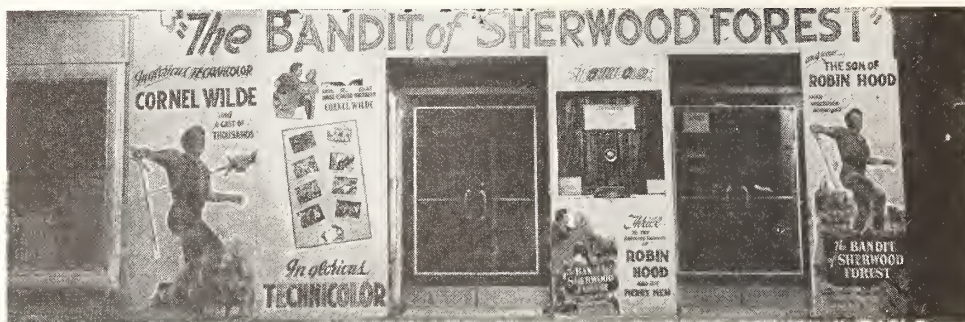 "The BANDIT of SHERWOOD FOREST"
In glorious TECHNICOLOR
CORNEL WILDE
and
A CAST OF
THOUSANDS
CORNEL WILDE
In glorious
TECHNICOLOR
Thrill
TO THE
OF
ROBIN
HOOD
AND HIS
MERRY MEN
The BANDIT
of SHERWOOD
THE SON OF
ROBIN HOOD
The BANDIT
of SHERWOOD
FOREST